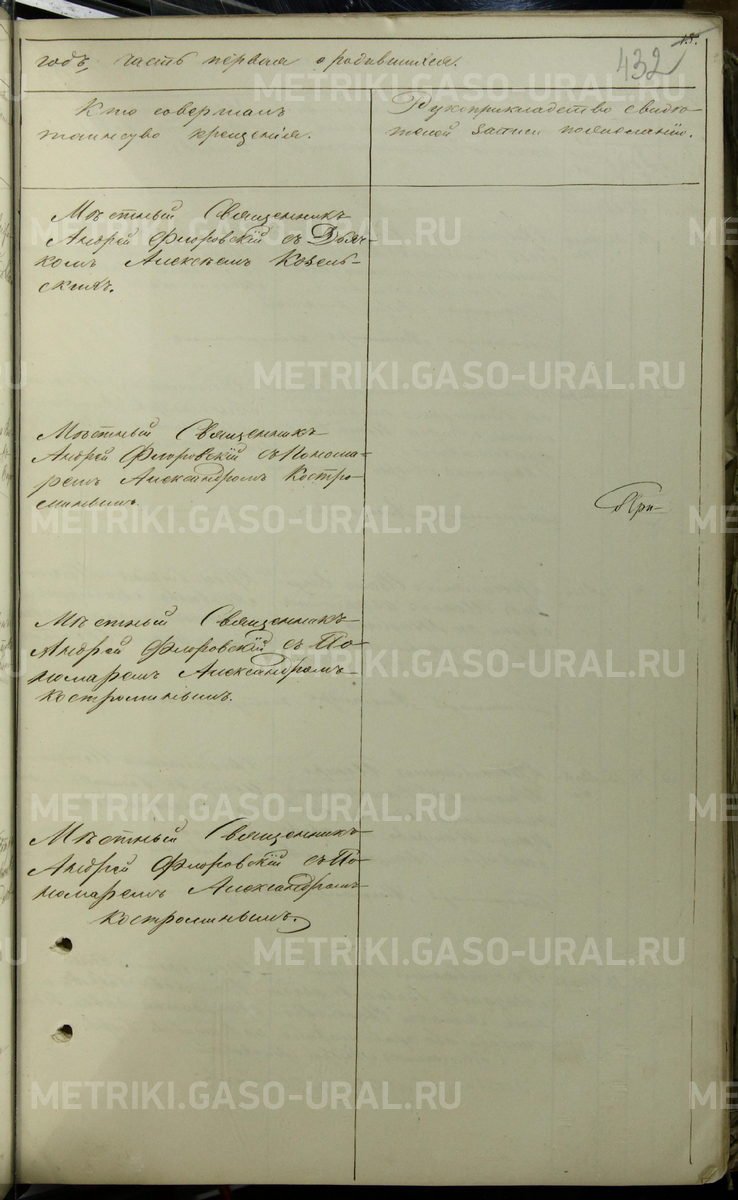 15.
432
годъ, часть первая о родившихся.
Кто совершалъ
таинство крещенія.
Рукоприкладство свидѣ-
телей записи по желанію.
Мѣстный Священникъ
Андрей Флоровскій съ Дьяч-
комъ Алексѣемъ Козель-
скимъ.
Мѣстный Священникъ
Андрей Флоровскій съ Понома-
ремъ Александромъ Костро-
минымъ.
При-
Мѣстный Священникъ
Андрей Флоровскій съ По-
номаремъ Александромъ
Костроминымъ.
Мѣстный Священникъ
Андрей Флоровскій съ По-
номаремъ Александромъ
Костроминымъ.
METRIKI.GASO-URAL.RU